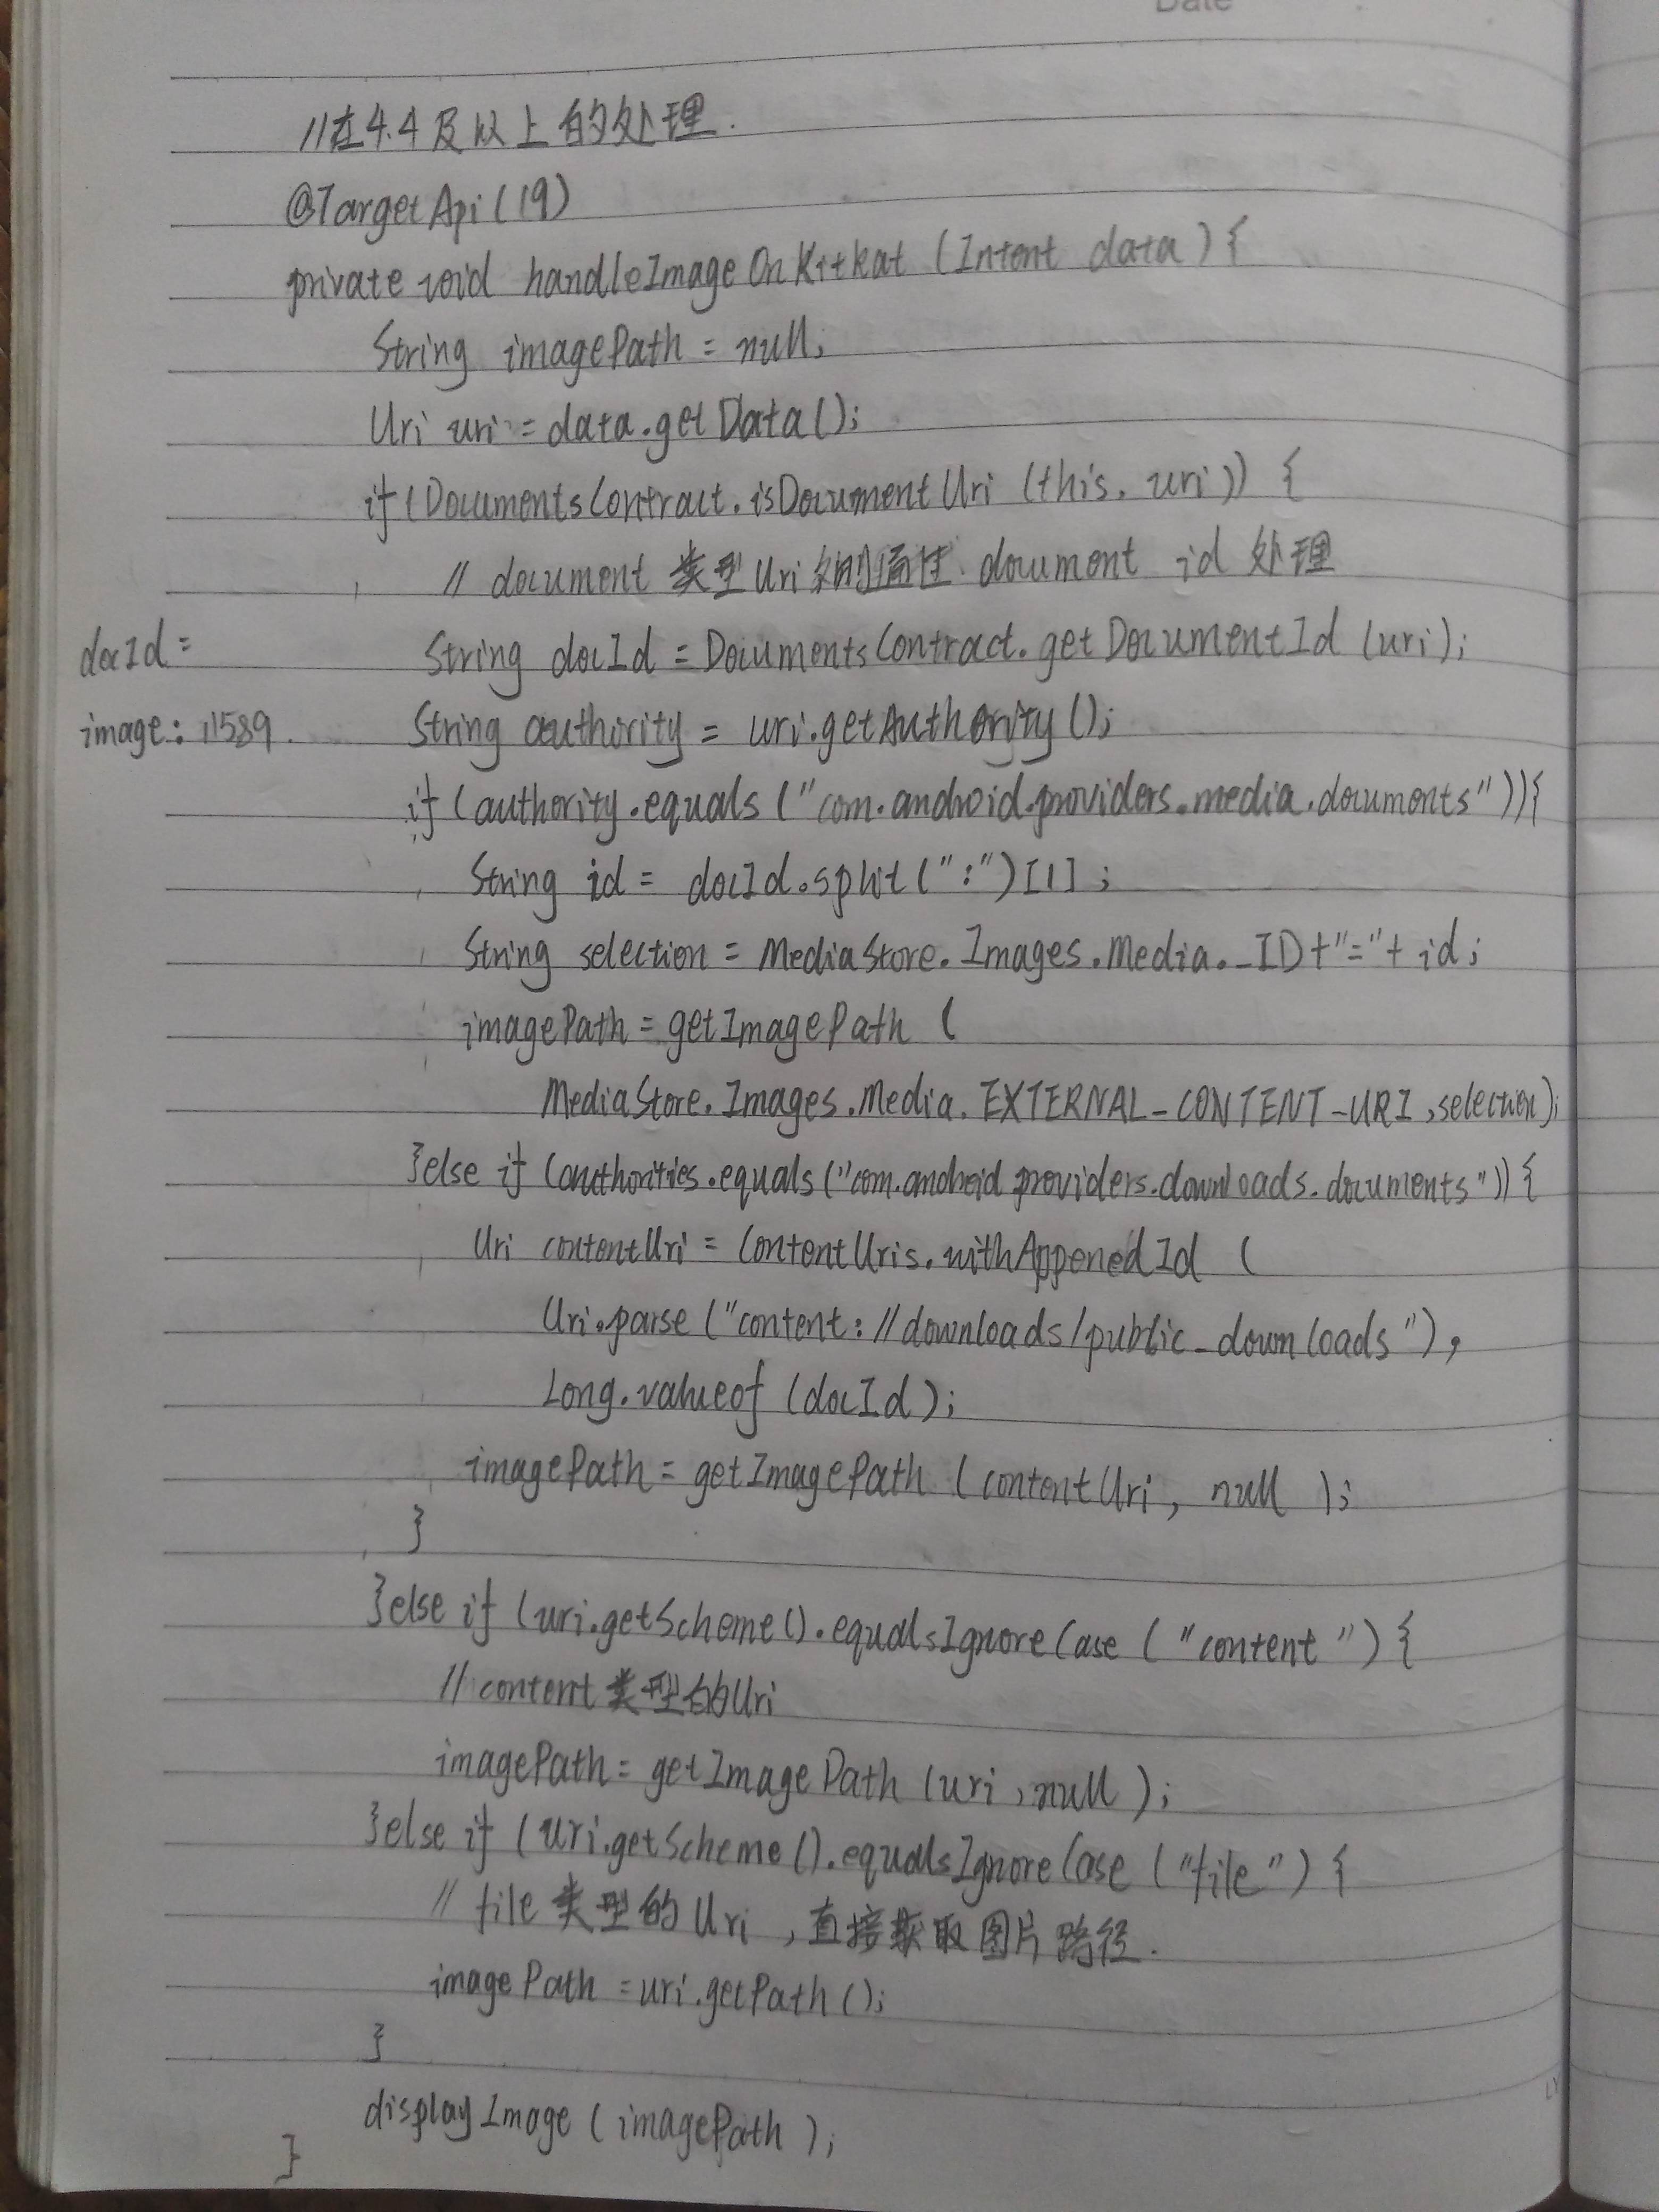 Date
//在4.4及以上的处理.
@TargetApi(19)
private void handleImageOnKitkat (Intent data){
String imagePath = null;
Uri uri = data.getData();
if (DocumentsContract.isDocumentUri (this, uri)) {
// document 类型Uri 则通过 document id 处理
docId =
String docId = DocumentsContract.getDocumentId (uri);
image: 11589.
String authority = uri.getAuthority ();
if (authority.equals ("com.android.providers.media.documents")){
String id = docId.split(":")[1];
String selection = MediaStore.Images.Media._ID+"="+ id;
imagePath = getImagePath (
MediaStore.Images.Media.EXTERNAL_CONTENT_URI, selection);
}else if (authorities.equals("com.android.providers.downloads.documents")){
Uri contentUri = ContentUris.withAppenedId (
Uri.parse ("content://downloads/public_downloads"),
Long.valueof (docId);
imagePath = getImagePath (contentUri, null );
}
}else if (uri.getScheme().equalsIgnoreCase ("content") {
//content类型的Uri
imagePath = getImagePath (uri, null );
}else if (uri.getScheme().equalsIgnoreCase ("file") {
// file 类型的Uri, 直接获取图片路径.
imagePath = uri.getPath();
}
displayImage ( imagePath );
}